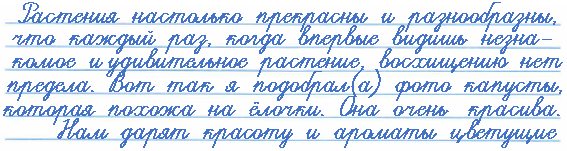 Растения настолько прекрасны и разнообразны,
что каждый раз, когда впервые видишь незна-
комое и удивительное растение, восхищению нет
предела. Вот так я подобрал(а) фото капусты,
которая похожа на ёлочки. Она очень красива.
Нам дарят красоту и ароматы цветущие